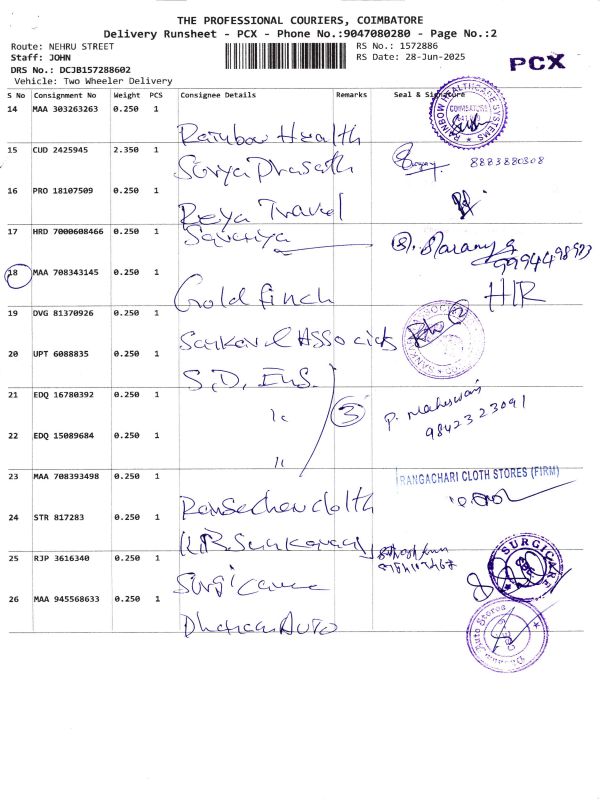 THE PROFESSIONAL COURIERS, COIMBATORE
Delivery Runsheet - PCX - Phone No.:9047080280 - Page No.:2
Route: NEHRU STREET
RS No.: 1572886
Staff: JOHN
RS Date: 28-Jun-2025
PCX
DRS No.: DCJB157288602
Vehicle: Two Wheeler Delivery
S No Consignment No Weight PCS Consignee Details Remarks Seal & Signature
14 MAA 303263263 0.250 1
Rainbow Health
RAINBOW HEALTHCARE SYSTEMS
COIMBATORE
15 CUD 2425945 2.350 1
Surya Prasath
8883880308
16 PRO 18107509 0.250 1
Reya Travel
17 HRD 7000608466 0.250 1
99944 98973
18 MAA 708343145 0.250 1
Gold finch
19 DVG 81370926 0.250 1
Sankaral Associats
20 UPT 6088835 0.250 1
S.D. Ens.
21 EDQ 16780392 0.250 1
3
P. Maheswari
9842323091
22 EDQ 15089684 0.250 1
23 MAA 708393498 0.250 1
RANGACHARI CLOTH STORES (FIRM)
24 STR 817283 0.250 1
25 RJP 3616340 0.250 1
Surgicare
SURGICARE
26 MAA 945568633 0.250 1
Auto Stores